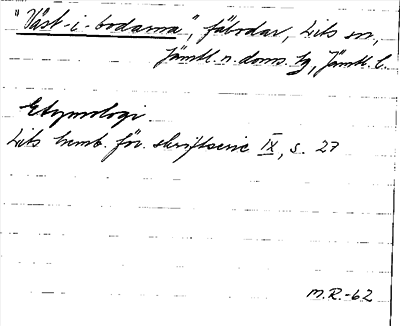 "Väst-i-bodarna", fäbodar, Lits sn,
Jämtl. n. doms. tg, Jämtl. l.
Etymologi
Lits hemb. för. skriftserie IX, s. 27
M.R.-62